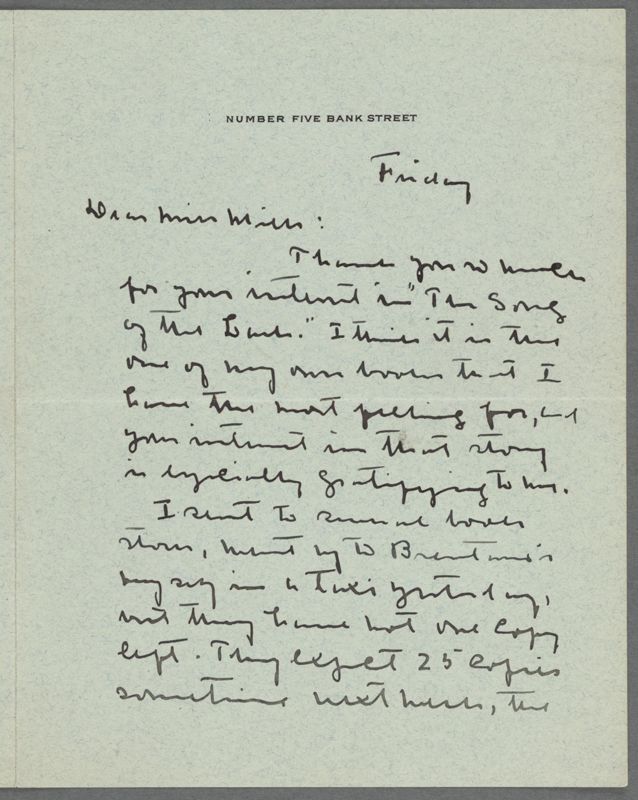 NUMBER FIVE BANK STREET
Friday
Dear Miss Mills:
Thank you so much
for your interest in "The Song
of the Lark." I think it is the
one of my own books that I
have the most feeling for, and
your interest in that story
is especially gratifying to me.
I sent to several book
stores, went up to Brentano's
myself in a taxi yesterday,
but they have not one copy
left. They expect 25 copies
sometime next week, the